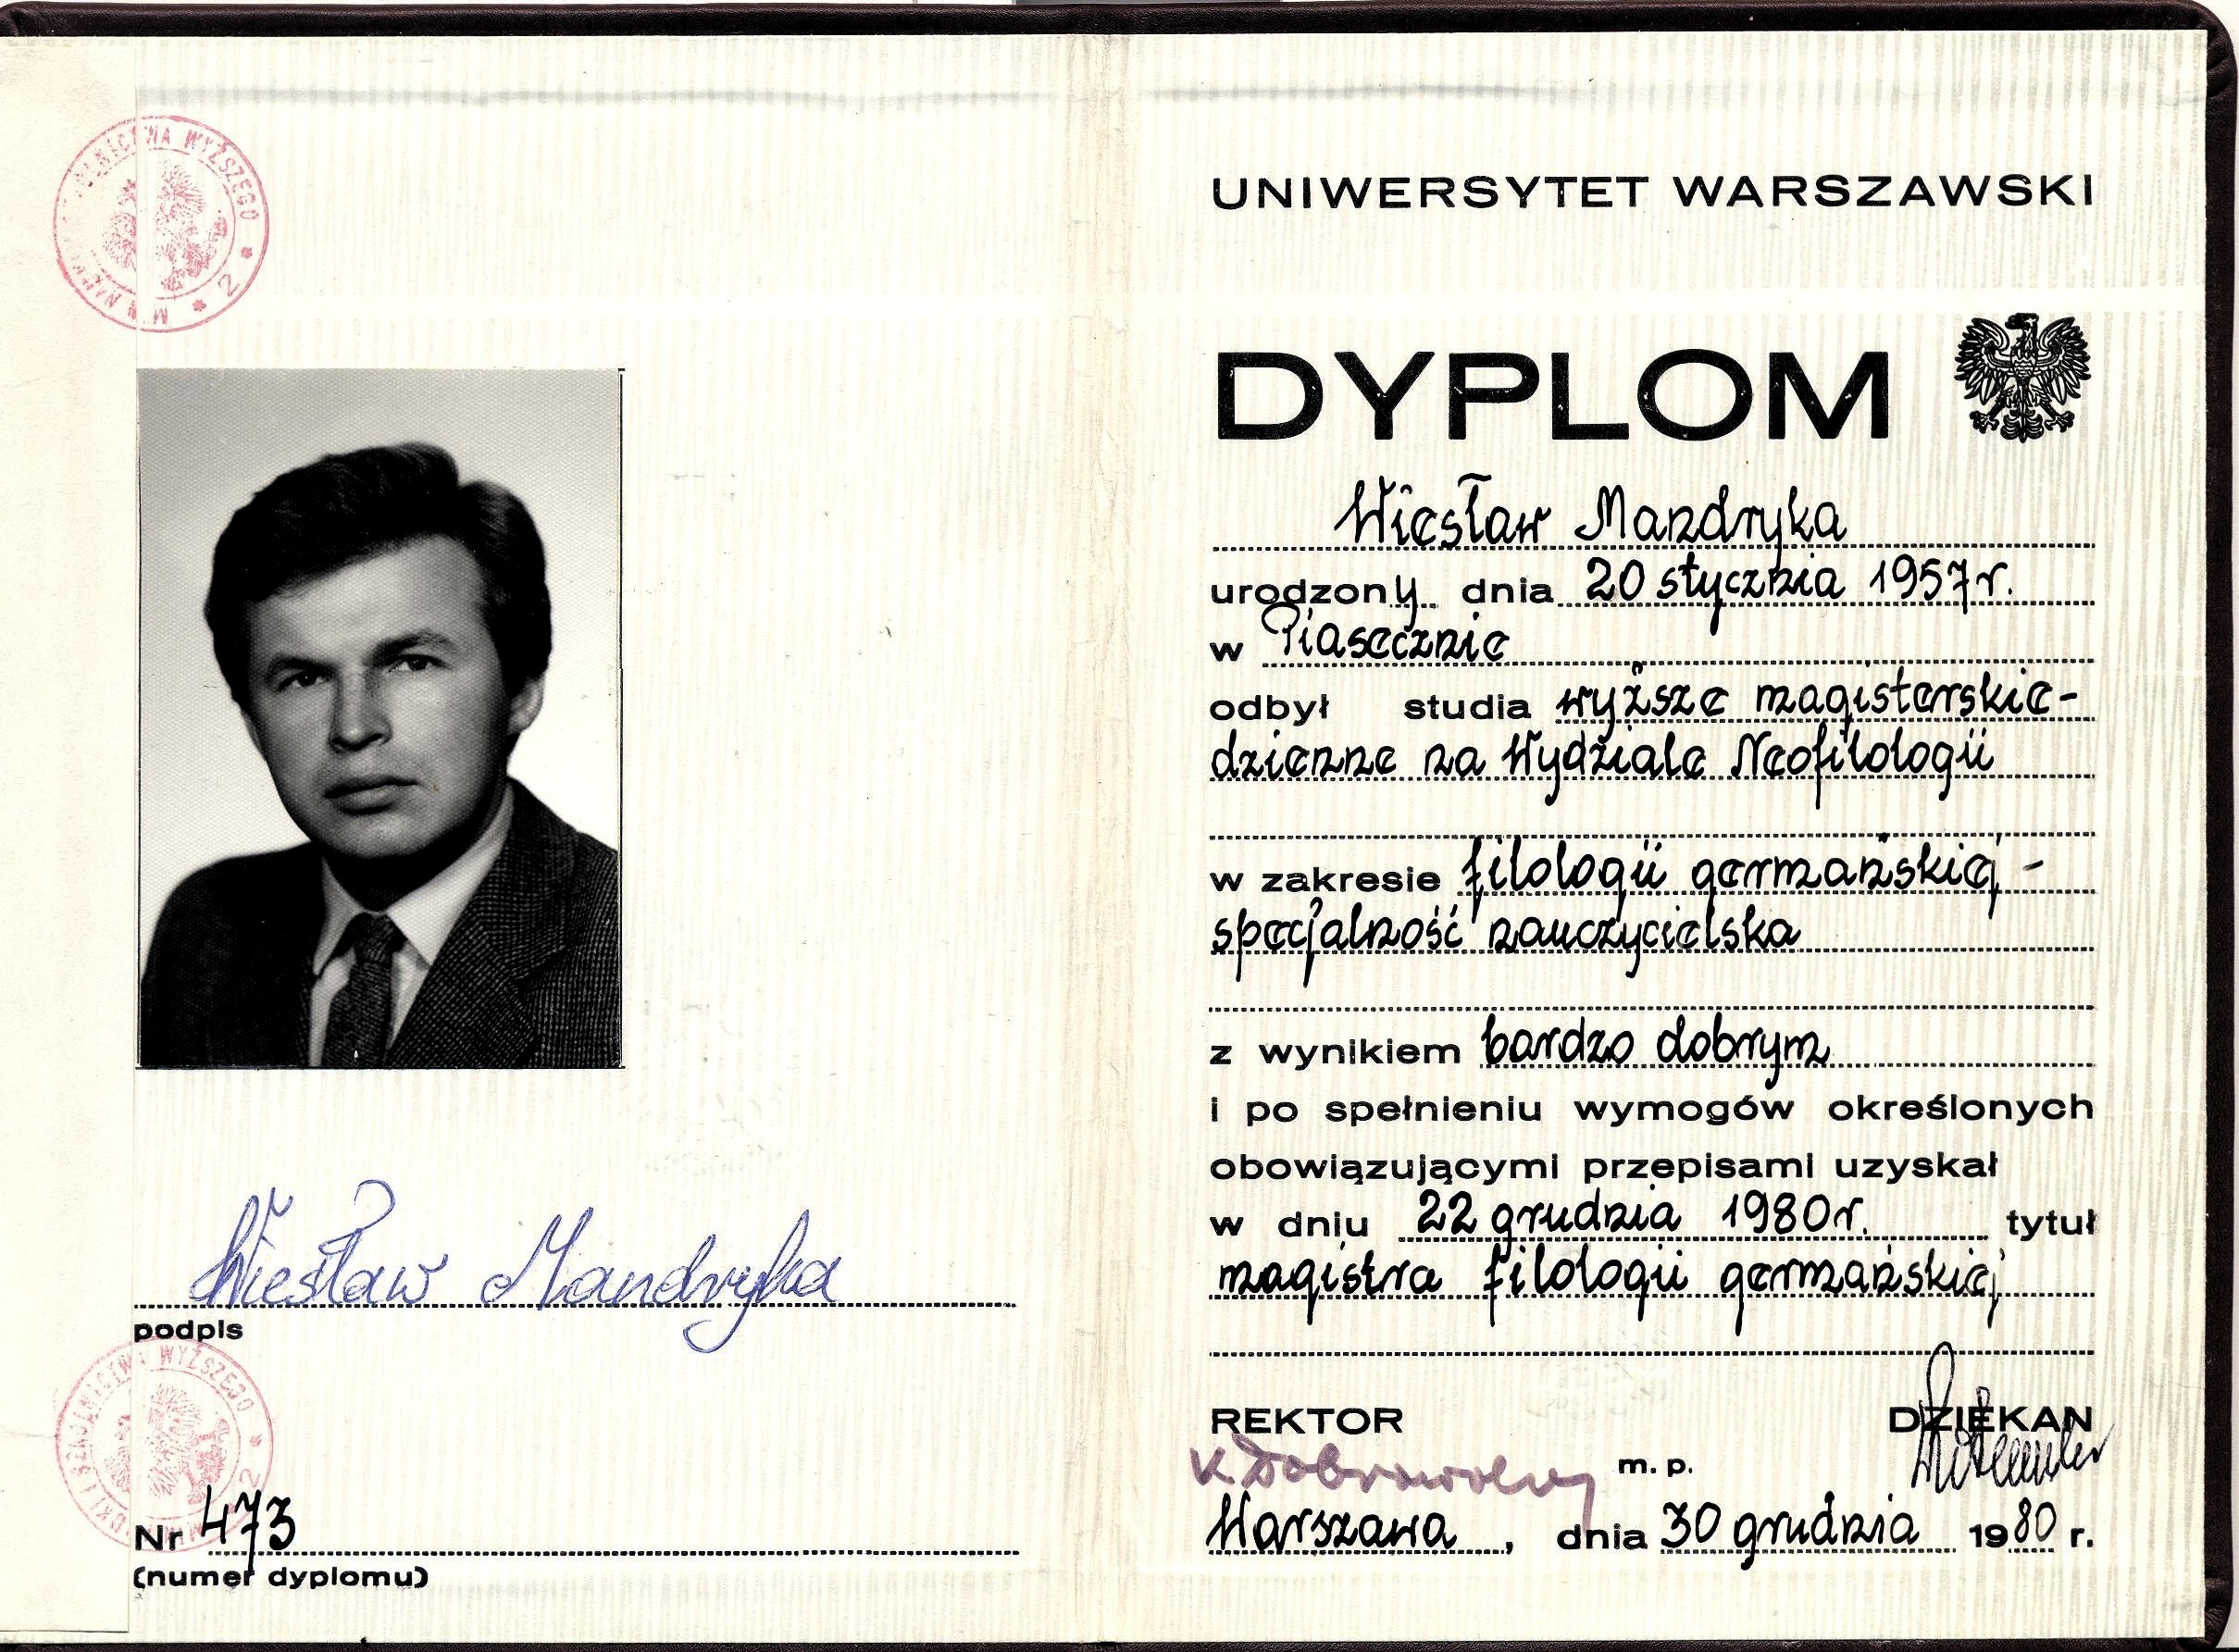 SZKOLNICTWA WYŻSZEGO * 2 * MIN. NAUKI
podpis
Wiesław Mandryka
NAUKI I SZKOLNICTWA WYŻSZEGO * 2
Nr 473
(numer dyplomu)
UNIWERSYTET WARSZAWSKI
DYPLOM
Wiesław Mandryka
urodzony dnia 20 stycznia 1957 r.
w Piasecznie
odbył studia wyższe magisterskie-
dzienne na Wydziale Neofilologii
w zakresie filologii germańskiej -
specjalność nauczycielska
z wynikiem bardzo dobrym
i po spełnieniu wymogów określonych
obowiązującymi przepisami uzyskał
w dniu 22 grudnia 1980 r. tytuł
magistra filologii germańskiej
REKTOR DZIEKAN
K. Dobrowolny m. p.
Warszawa, dnia 30 grudnia 1980 r.